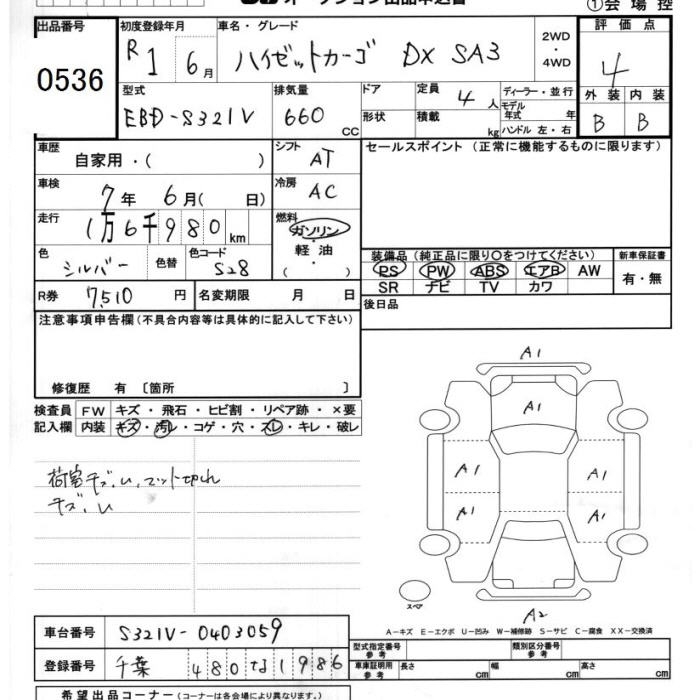 オークション出品申込書
①会場控
出品番号 初度登録年月 車名・グレード 2WD・4WD 評価点
0536 R1 6月 ハイゼットカーゴ DX SA3 4
型式 排気量 ドア 定員 ディーラー・並行 外装 内装
EBD-S321V 660 CC 形状 積載 4人 kg モデル年式 年 ハンドル 左・右 B B
車歴 自家用・( ) シフト AT セールスポイント (正常に機能するものに限ります)
車検 7年 6月( 日) 冷房 AC
走行 1万6千980km 燃料 ガソリン・軽油・( )
色 シルバー 色替 色コード S28 装備品 (純正品に限り○をつけてください) 新車保証書
PS PW ABS エアB AW 有・無
SR ナビ TV カワ
R券 7,510円 名変期限 月 日 後日品
注意事項申告欄 (不具合内容等は具体的に記入して下さい)
修復歴 有 〔箇所 〕
検査員 FW キズ・飛石・ヒビ割・リペア跡・×要
記入欄 内装 キズ・汚レ・コゲ・穴・スレ・キレ・破レ
荷室キズ、い、マット切れ
キズ、い
A1
A1
A1 A1
A1 A1
スペア
A2
A-キズ E-エクボ U-凹み W-補修跡 S-サビ C-腐食 XX-交換済
車台番号 S321V-0403059
型式指定番号 参考 類別区分番号 参考
登録番号 千葉 480 な 1986
車庫証明用 参考 長さ cm 幅 cm 高さ cm
希望出品コーナー (コーナーは各会場により異なります。)